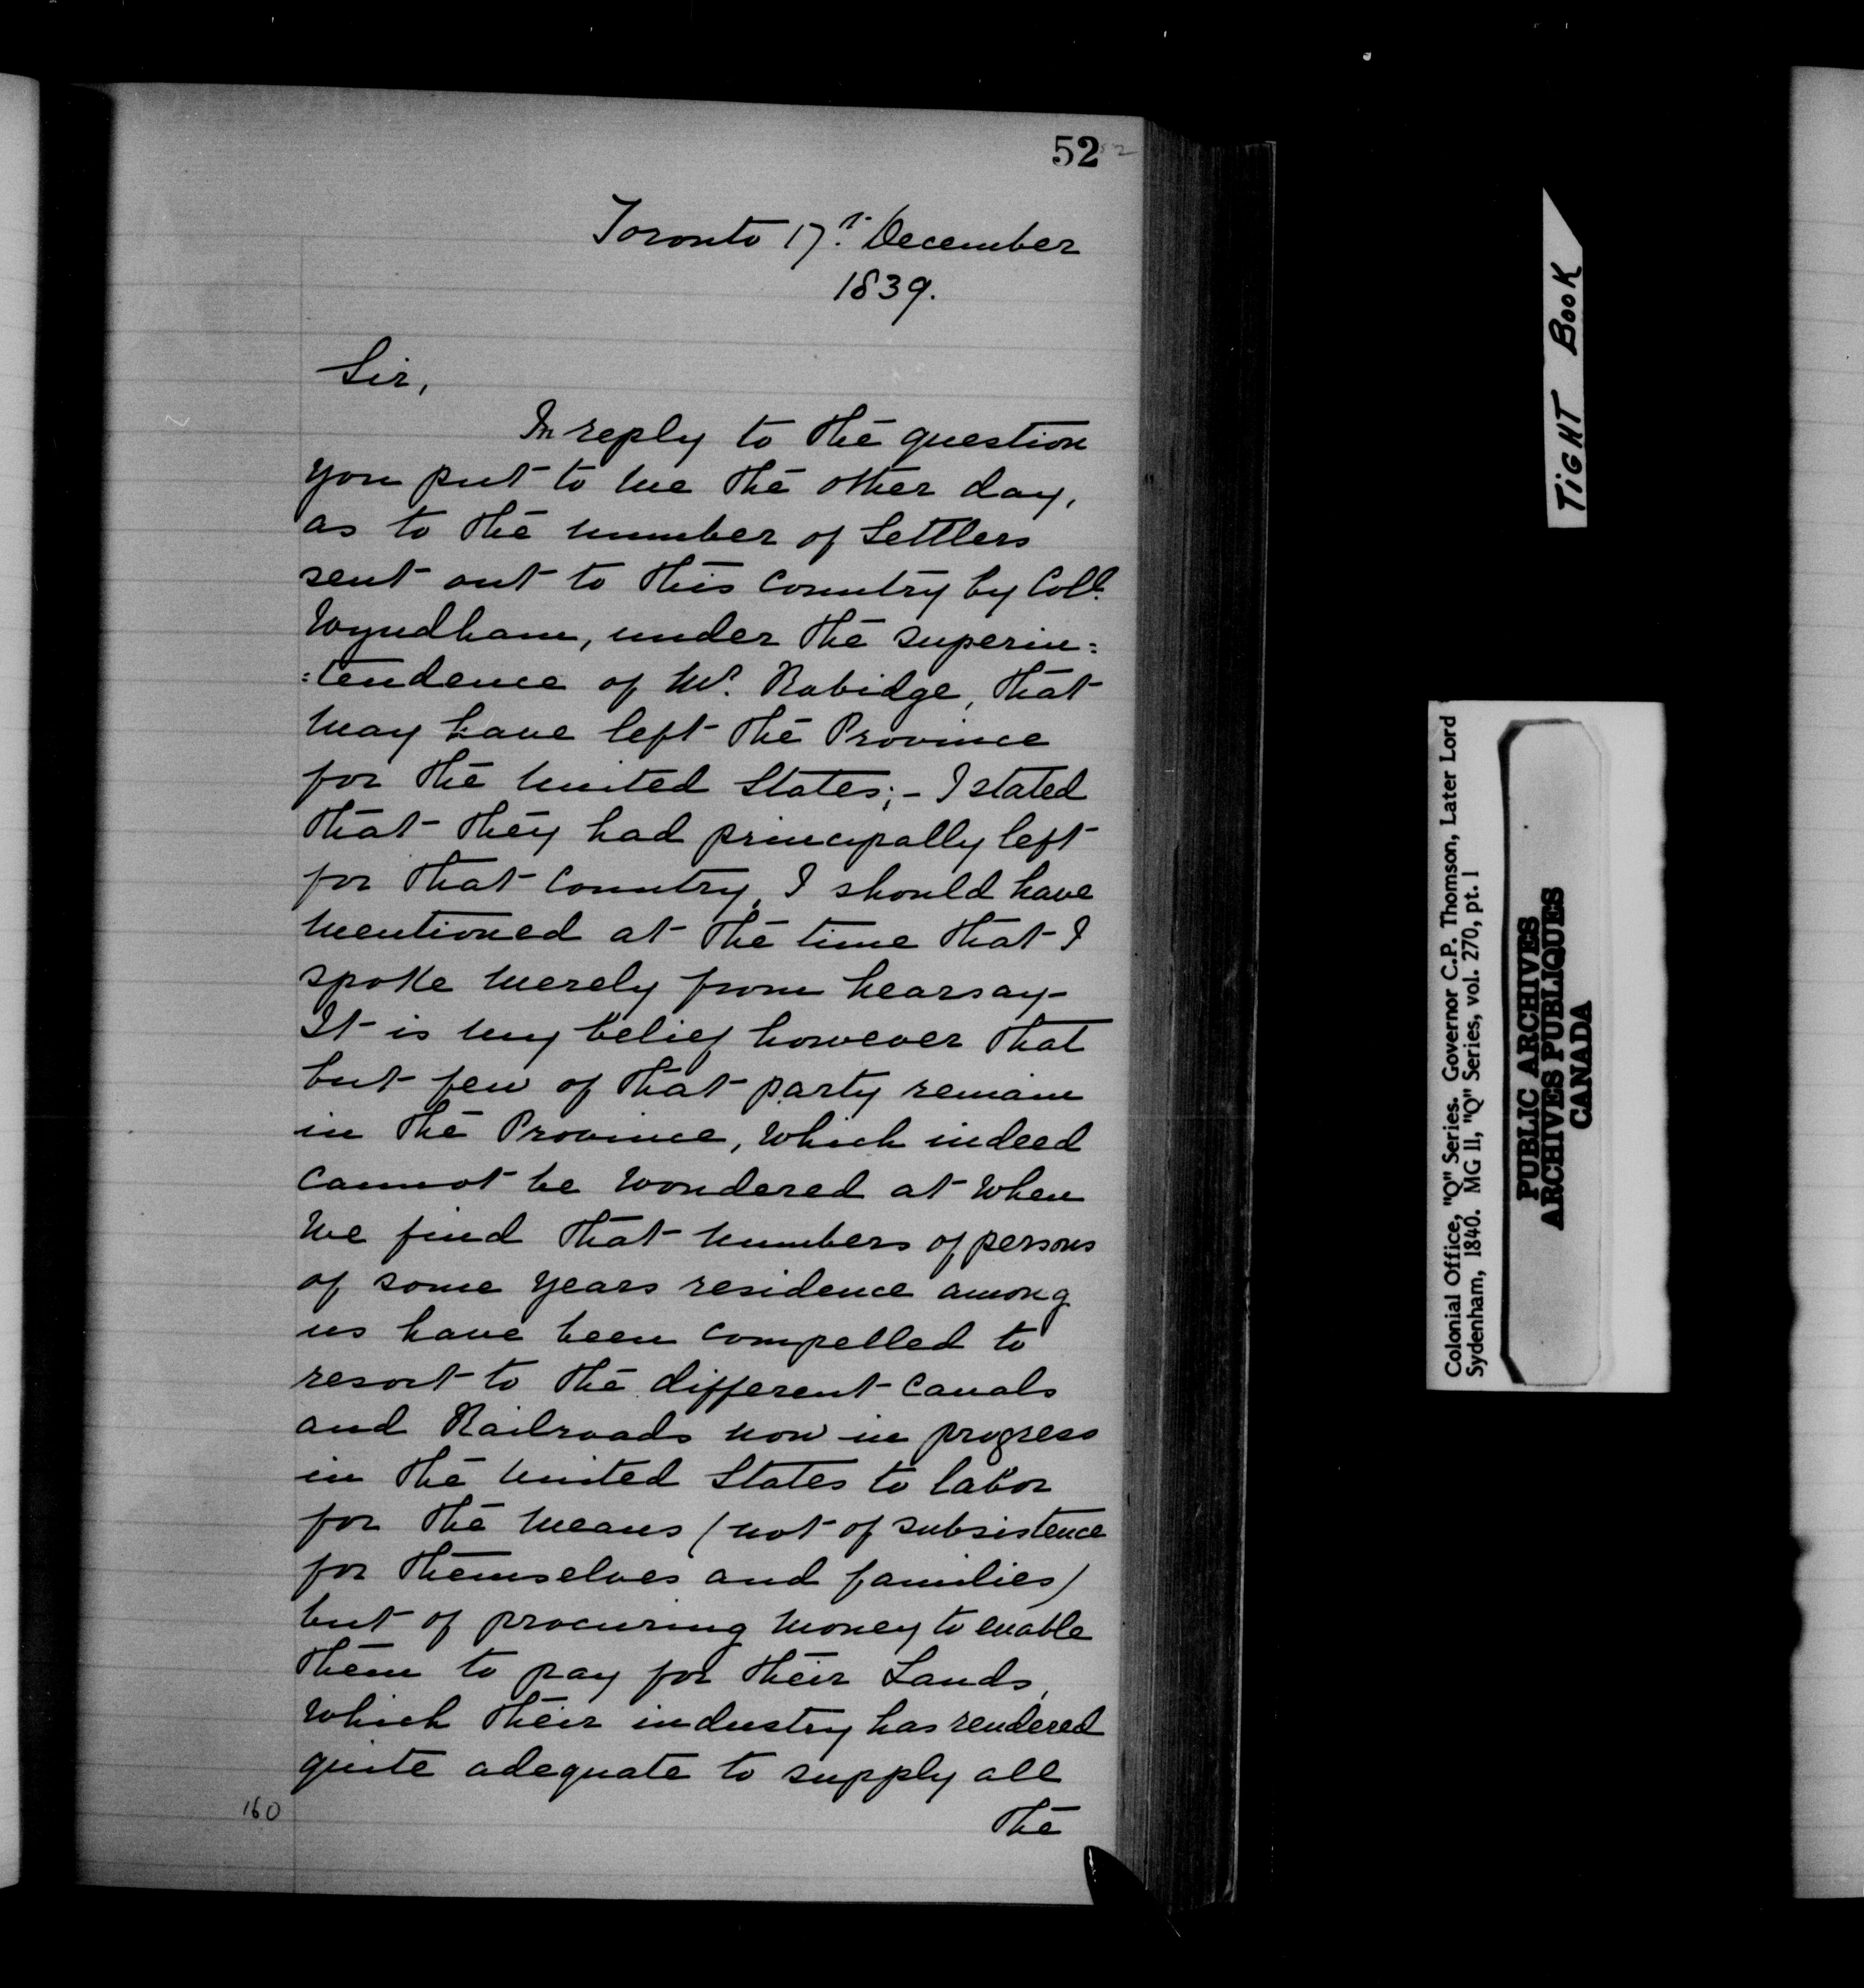 52
52
Toronto 17.t December
1839.
Sir,
In reply to the question
you put to me the other day,
as to the number of Settlers
sent out to this Country by Coll.
Wyndham, under the superin=
=tendence of Mr. Rubidge, that
may have left the Province
for the United States; - I stated
that they had principally left
for that Country, I should have
mentioned at the time that I
spoke merely from hearsay -
It is my belief however that
but few of that party remain
in the Province, which indeed
cannot be wondered at when
we find that numbers of persons
of some years residence among
us have been compelled to
resort to the different Canals
and Railroads now in progress
in the United States to labor
for the means (not of subsistence
for themselves and families)
but of procuring money to enable
them to pay for their Lands,
which their industry has rendered
quite adequate to supply all
the
160
TiGHT BOOK
Colonial Office, "Q" Series. Governor C.P. Thomson, Later Lord
Sydenham, 1840. MG 11, "Q" Series, vol. 270, pt. 1
PUBLIC ARCHIVES
ARCHIVES PUBLIQUES
CANADA